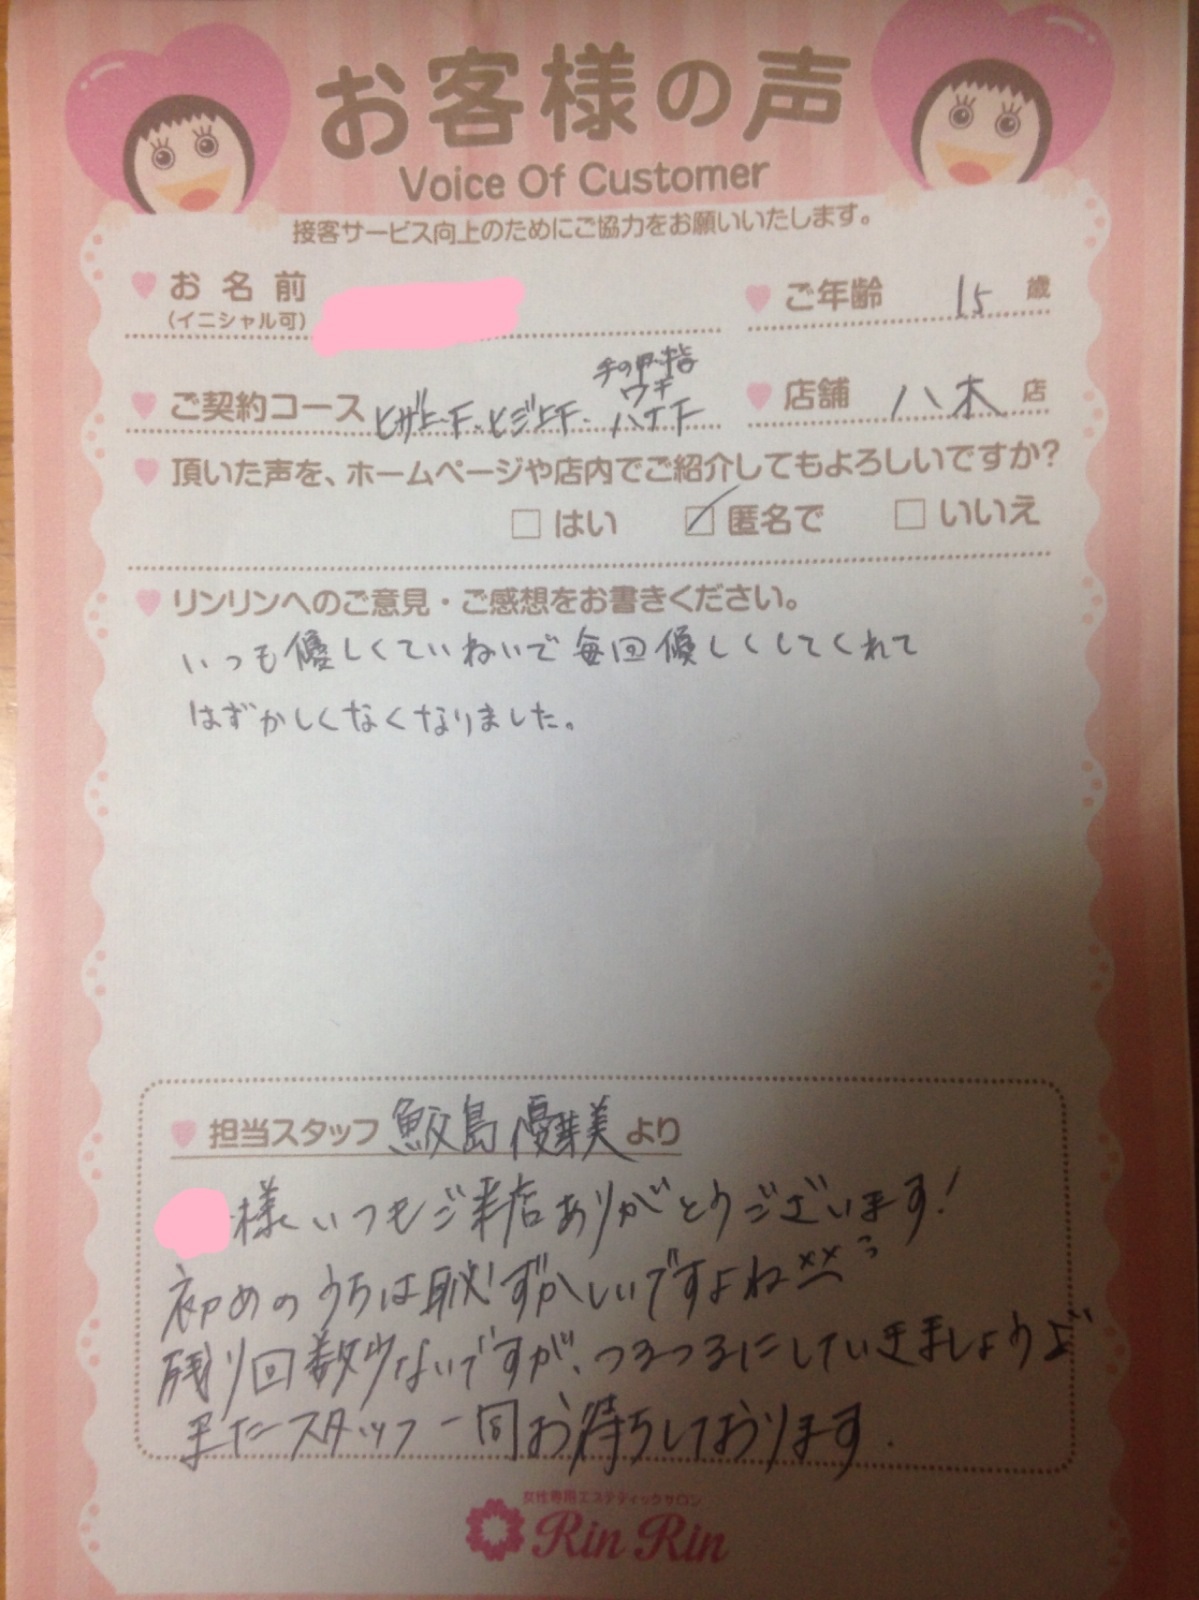 お客様の声
Voice Of Customer
接客サービス向上のためにご協力をお願いいたします。
お名前
(イニシャル可)
ご年齢 15 歳
手の甲・指
ワキ
ご契約コース ヒザ上下、ヒジ上下・ハナ下
店舗 八木 店
頂いた声を、ホームページや店内でご紹介してもよろしいですか?
はい 匿名で いいえ
リンリンへのご意見・ご感想をお書きください。
いつも優しくていねいで毎回優しくしてくれて
はずかしくなくなりました。
担当スタッフ 鮫島 優芽美 より
様 いつもご来店ありがとうございます!
初めのうちは恥ずかしいですよね
残り回数少ないですが、つるつるにしていきましょうよ
またスタッフ一同お待ちしております.
女性専用エステティックサロン
Rin Rin